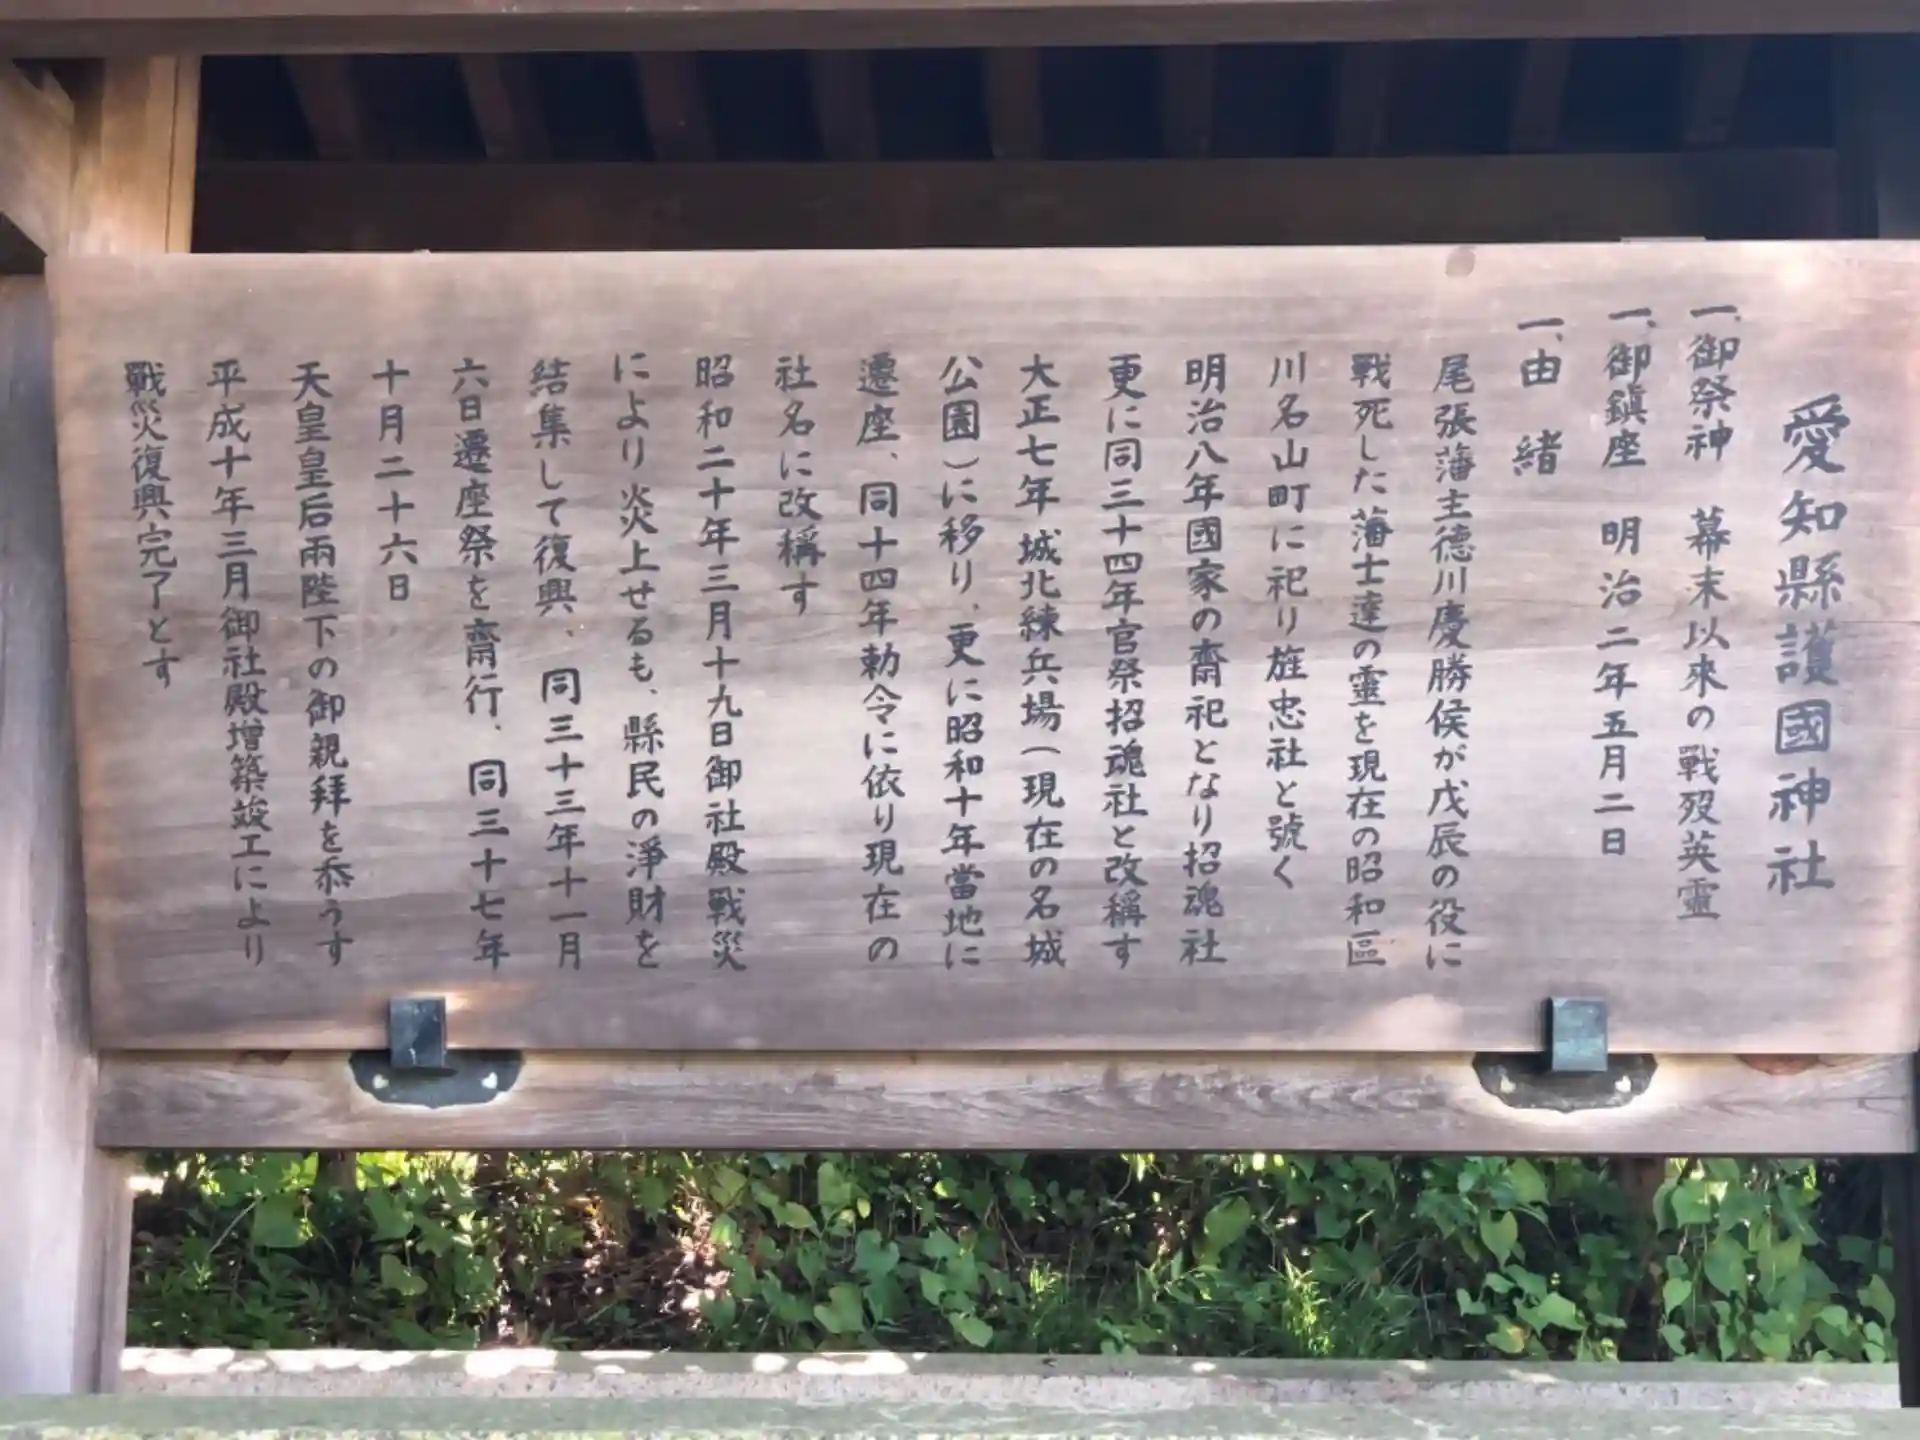 愛知縣護國神社
一、御祭神　幕末以來の戰歿英靈
一、御鎮座　明治二年五月二日
一、由　緒
尾張藩主徳川慶勝侯が戊辰の役に
戰死した藩士達の靈を現在の昭和區
川名山町に祀り旌忠社と號く
明治八年國家の齋祀となり招魂社
更に同三十四年官祭招魂社と改稱す
大正七年城北練兵場（現在の名城
公園）に移り、更に昭和十年當地に
遷座、同十四年勅令に依り現在の
社名に改稱す
昭和二十年三月十九日御社殿戰災
により炎上せるも、縣民の淨財を
結集して復興、同三十三年十一月
六日遷座祭を齋行、同三十七年
十月二十六日
天皇皇后兩陛下の御親拜を忝うす
平成十年三月御社殿増築竣工により
戰災復興完了とす